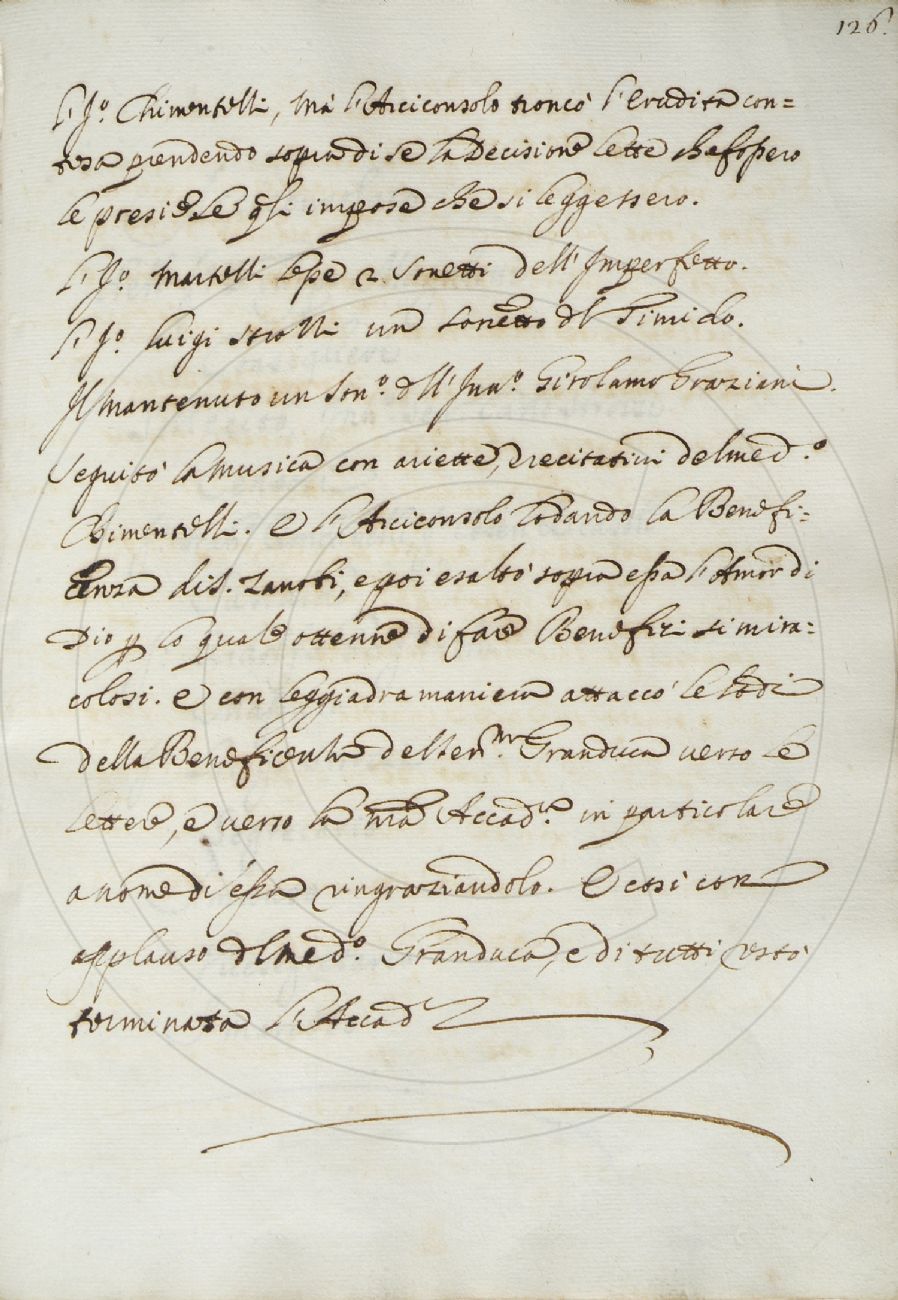 126.
l'Jo. Chimentelli, mà l'Arciconsolo troncò l'erudita con=
tesa prendendo sopra di sè la Decisione lette che fossero
le presi e le qli impose che si leggessero.
l'Jo. Martelli lesse 2 Sonetti dell'Imperfetto.
l'Jo. Luigi Strozzi un Sonetto dl Timido.
Il Mantenuto un Son.o dll' Inn.o Girolamo Graziani.
Seguitò la Musica con ariette, e recitativi del med.o
Chimentelli. E l'Arciconsolo lodando la Benefi=
cenza di S. Zanobi, e poi esaltò sopra essa l'Amor di
Dio p lo quale ottenne di fare Benefizi si mira=
colosi. E con leggiadra maniera attaccò le lodi
della Beneficenza del Ser.mo Granduca verso le
lettere, e verso la nra Accad.a in particolare
a nome di essa ringraziandolo. E così con
applauso dl med.o Granduca, e di tutti restò
terminata l'Accad.